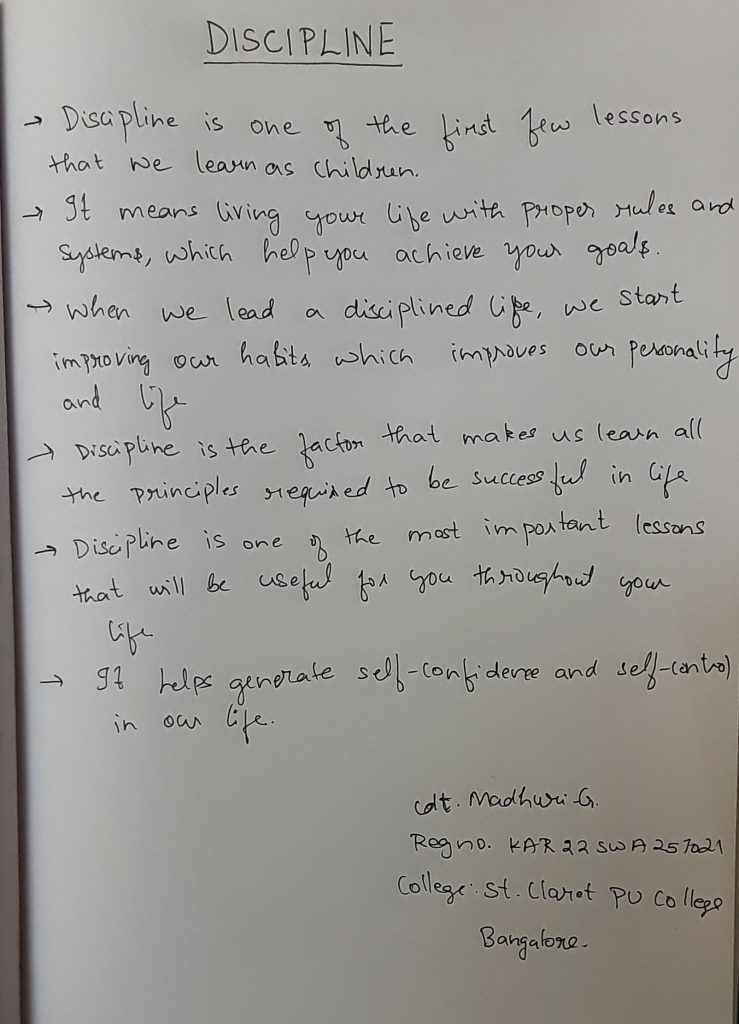 DISCIPLINE
→ Discipline is one of the first few lessons
that we learn as children.
→ It means living your life with proper rules and
systems, which help you achieve your goals.
→ when we lead a disciplined life, we start
improving our habits, which improves our personality
and life
→ Discipline is the factor that makes us learn all
the principles required to be successful in life
→ Discipline is one of the most important lessons
that will be useful for you throughout your
life
→ It helps generate self-confidence and self-control
in our life.
cdt. Madhuri-G.
Reg no. KAR 22 SWA 257021
College:- St. Claret PU College
Bangalore.